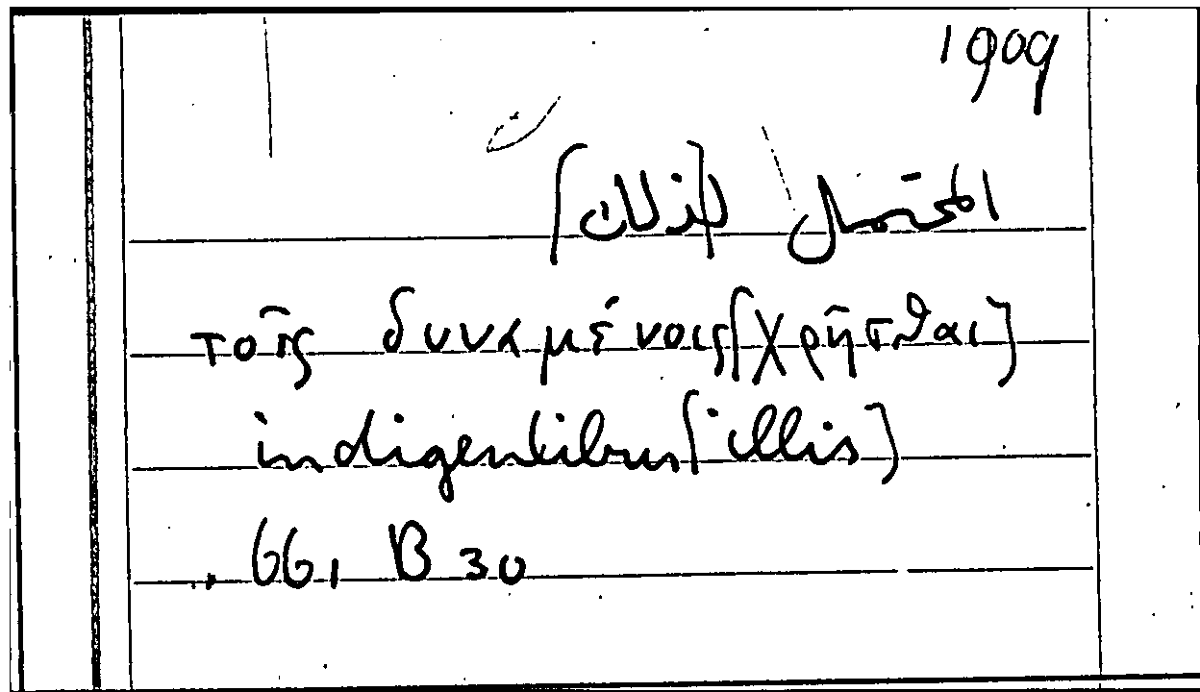 1909
المحتمل [لذلك]
τοῖς δυναμένοις [χρῆσθαι]
indigentibus [illis]
661, B 30